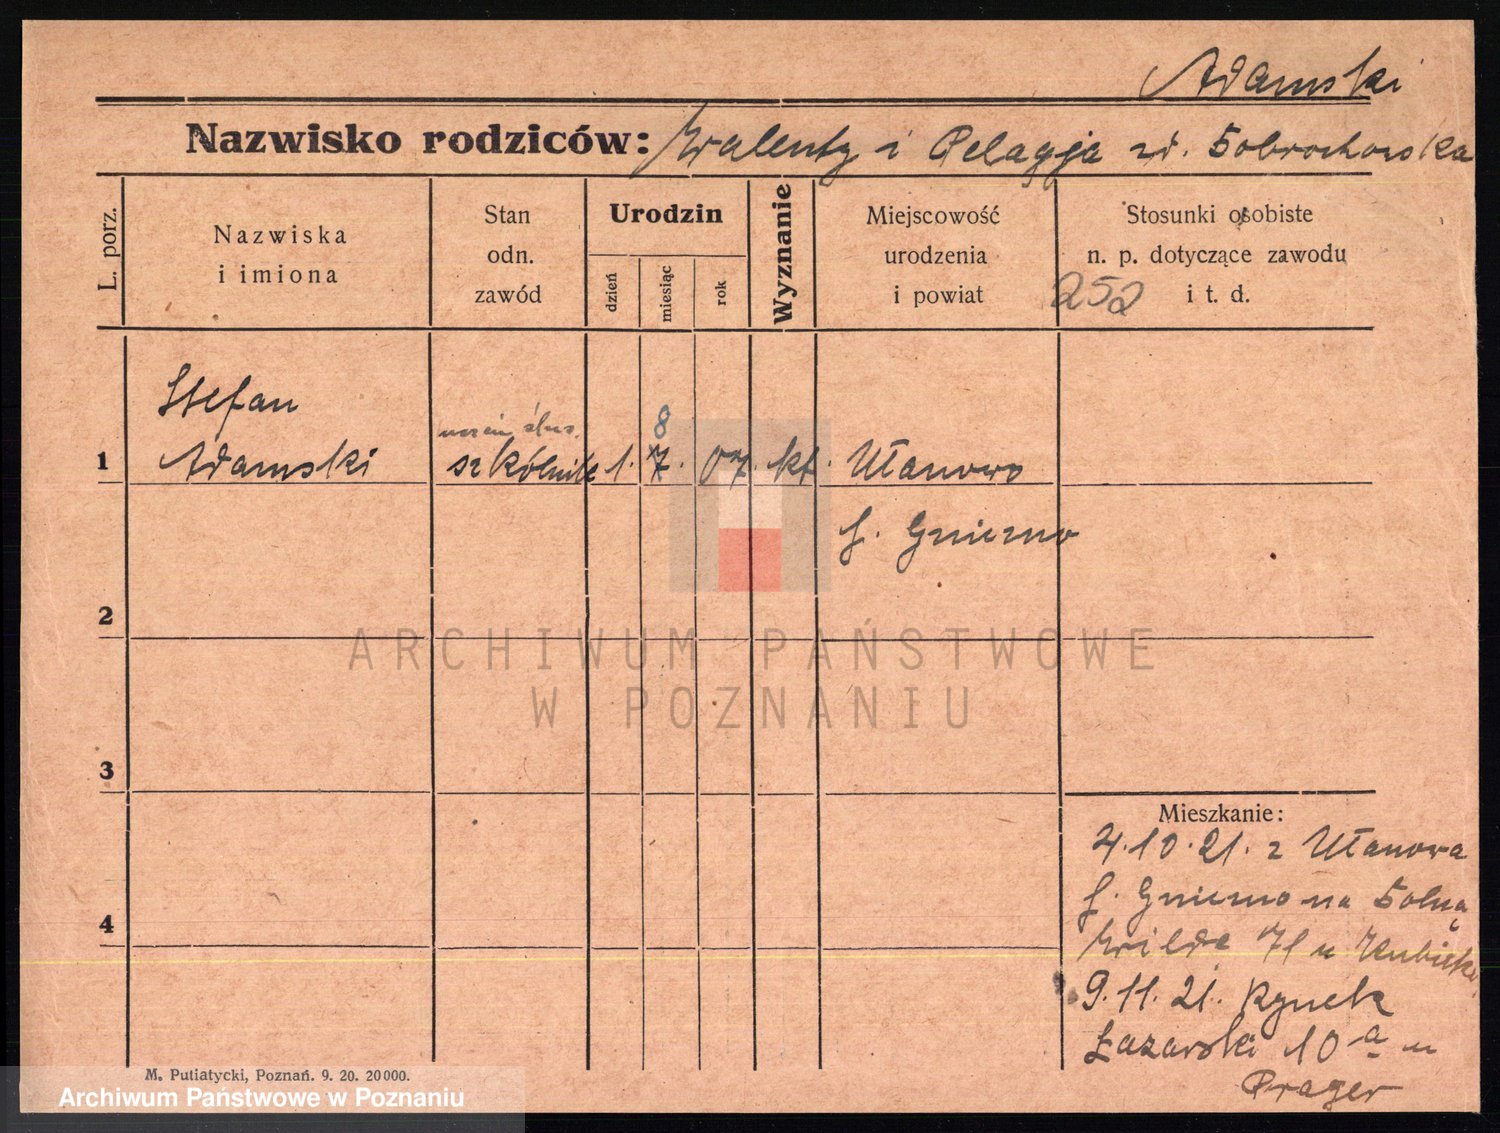 Adamski
Nazwisko rodziców: Walenty i Pelagja zd. Dobrochowska
L. porz.
Nazwiska
i imiona
Stan
odn.
zawód
Urodzin
dzień
miesiąc
rok
Wyznanie
Miejscowość
urodzenia
i powiat
Stosunki osobiste
n. p. dotyczące zawodu
i t. d.
252
Stefan
8
1 Adamski szkólnik 1. 7. 07. kt. Ułanowo
f. Gniezno
2
3
4
Mieszkanie:
4.10.21. z Ułanowa
f. Gniezno na Dolną
Wildę 71 u
9.11.21. Rynek
Łazarski 10 a u
Prager
M. Putiatycki, Poznań. 9. 20. 20000.
ARCHIWUM PAŃSTWOWE
W POZNANIU
Archiwum Państwowe w Poznaniu